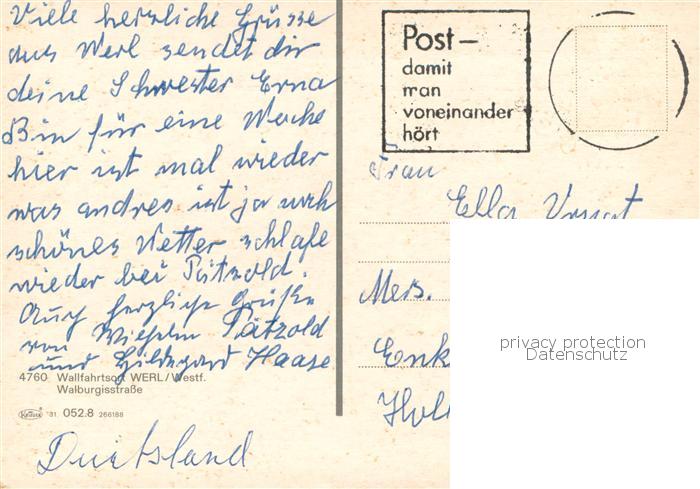 Viele herzliche Grüsse
aus Werl sendet dir
deine Schwester Erna
Bin für eine Woche
hier ist mal wieder
was andres ist ja auch
schönes Wetter schlafe
wieder bei Pätzold.
Auch herzliche Grüße
von Wilhelm Pätzold
und Hildegard Haase
4760 Wallfahrtsort WERL/Westf.
Walburgisstraße
Krüger '81 052.8 266188
Duitsland
Post –
damit
man
voneinander
hört
Frau
Ella
Mers.
Enk
Holl
privacy protection
Datenschutz